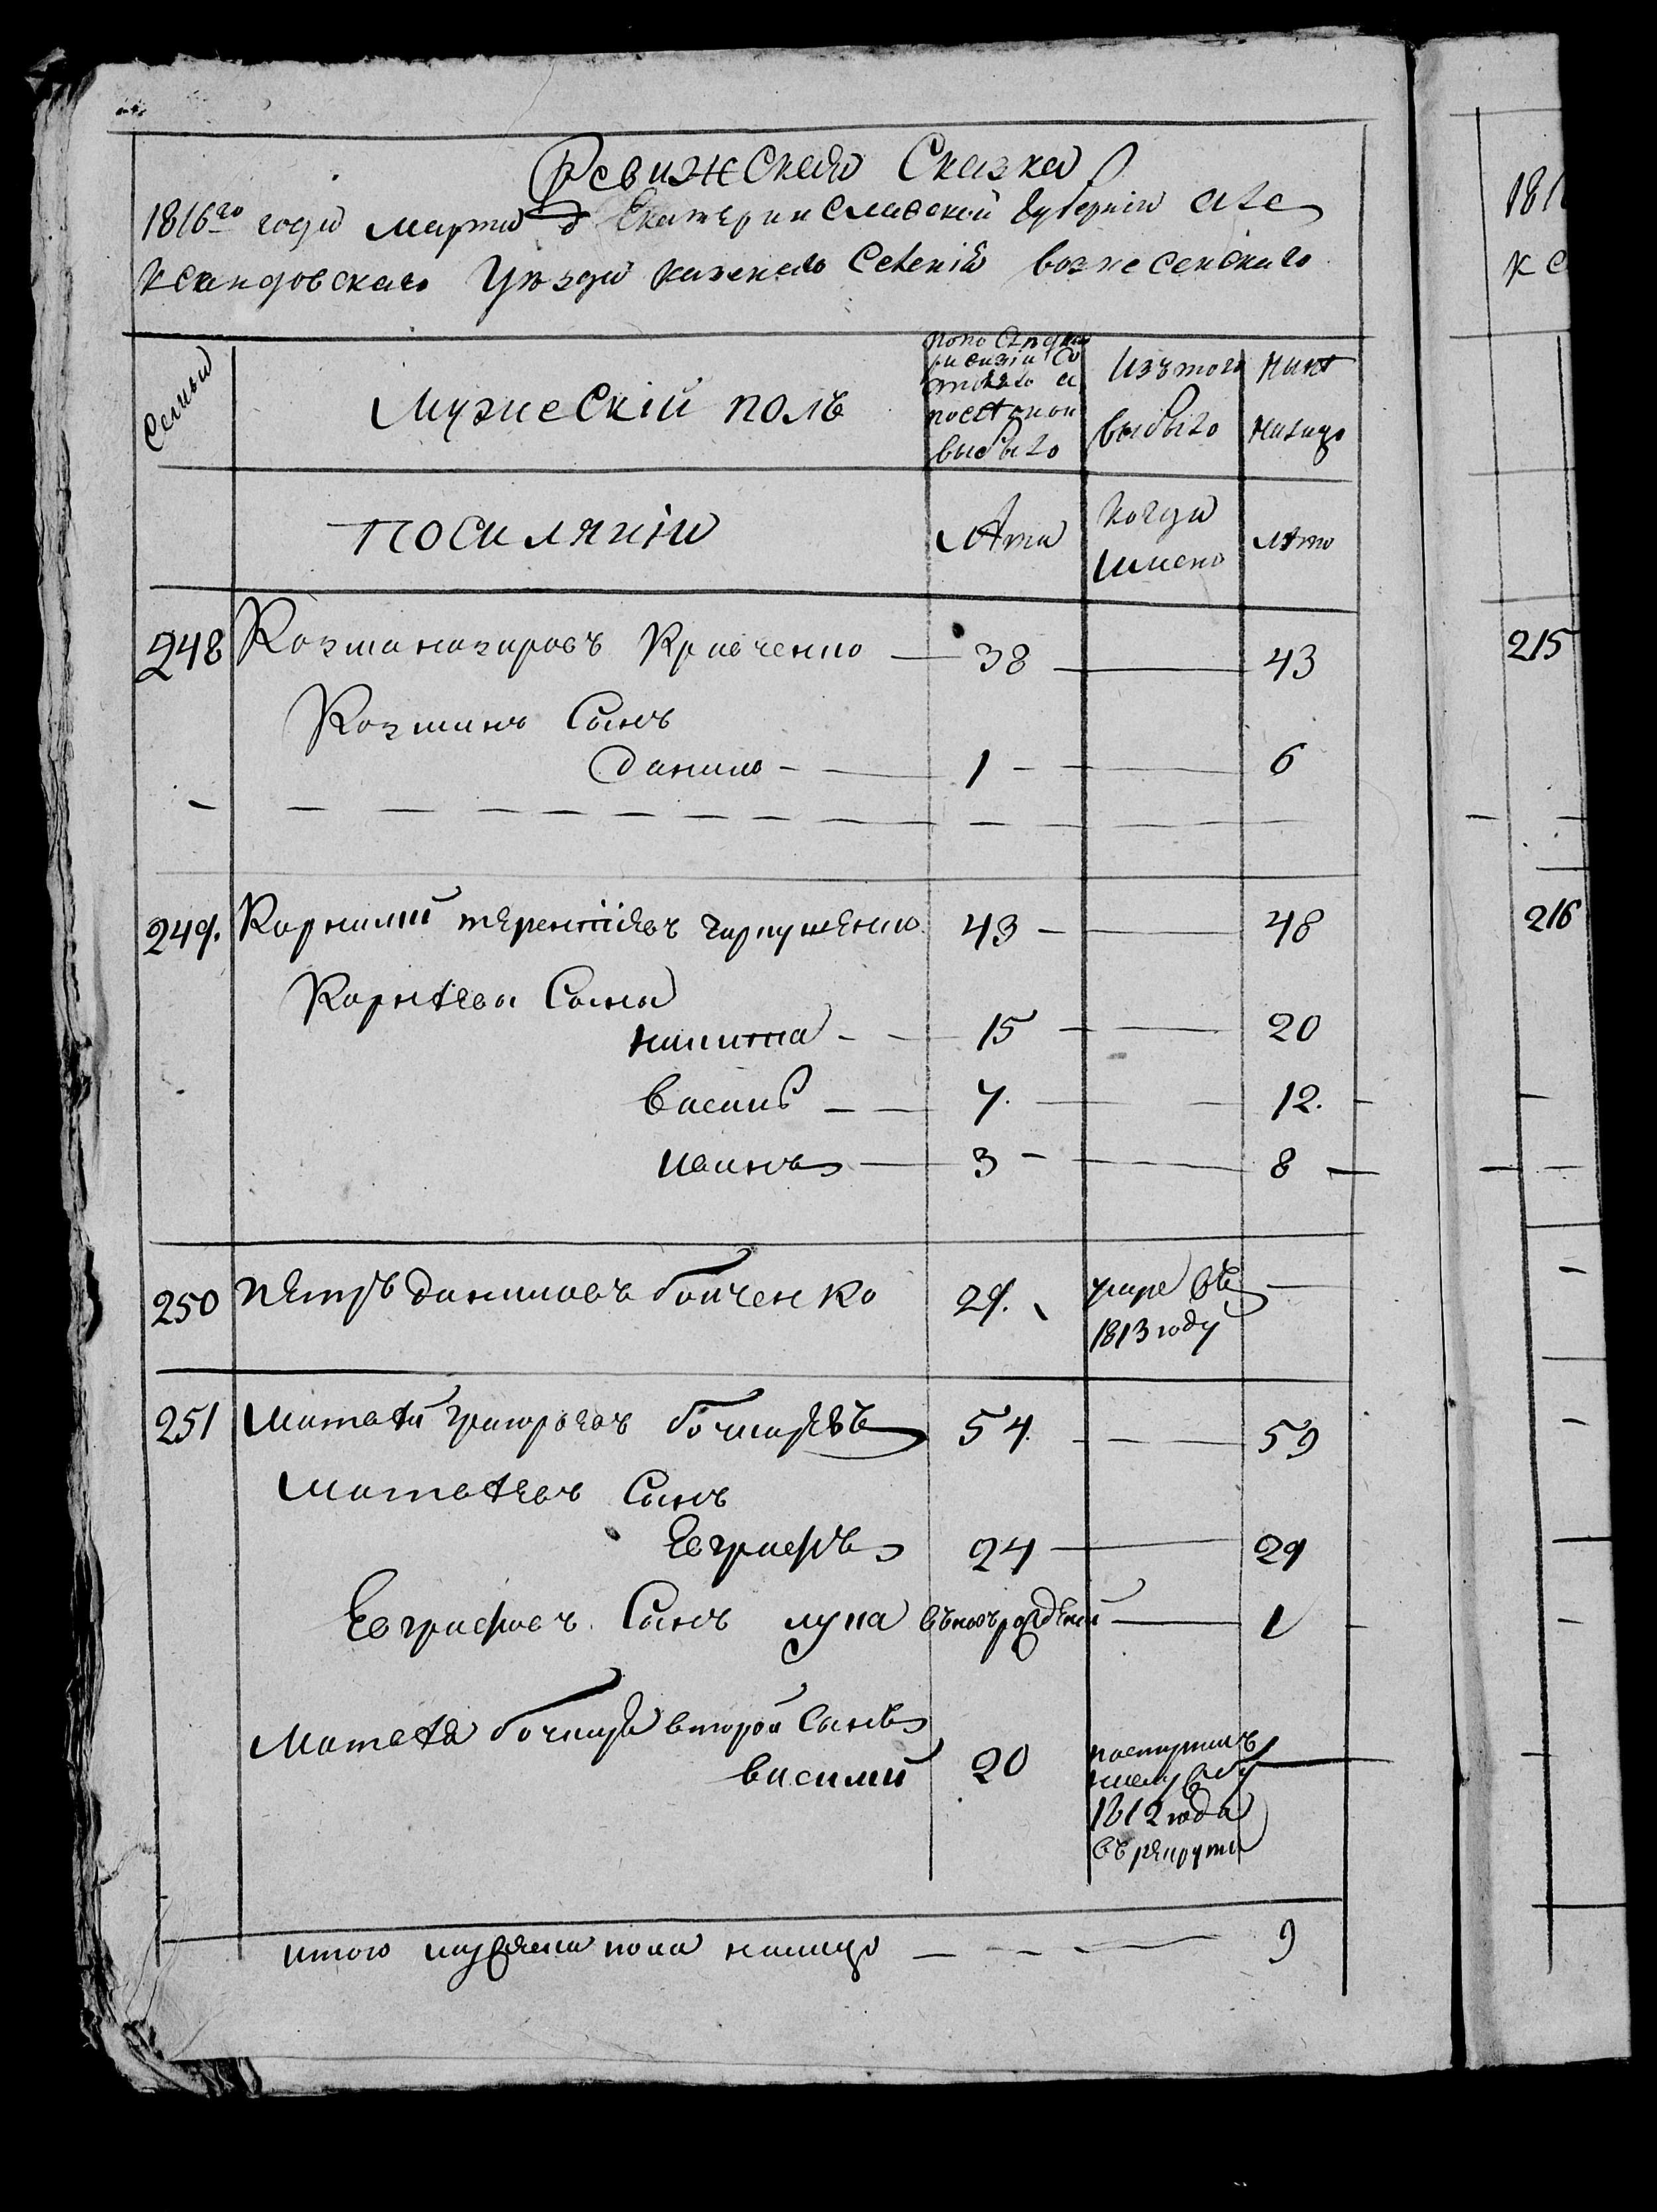 Ревижская Сказка
1816го года марта д Екатеринславской Губернии Але
ксандровскаго Уезда казенаго Селения вознесенскаго
Семьи
Мужескій полъ
по последней
ревизіи Со
стояло и
после оной
выбыло
Изъ того
выбыло
Ныне
налицо
поселянии
лета
когда
имено
лета
248 Козма назаровъ Кравченко — 38 — 43
Козминъ Сынъ
данило — 1 — 6
249. Карнилий терентіевъ 43 — 48
Карнѣевы Сыны
никита — 15 — 20
Василь — 7. — 12.
иванъ — 3 — 8 —
250 петръ даниловъ бойченко 29. умре въ —
1813 году
251 Матвѣй григорьевъ бочкарѣвъ 54 — 59
Матвѣевъ Сынъ
Евграфъ 24 — 29
Евграфовъ Сынъ лука въновърожденій — 1
Матвѣя бочкаря второй Сынъ
василий 20 поступилъ
1812 года
въ рекруты
итого мужеска пола налицо — 9
1816
кс
215
216